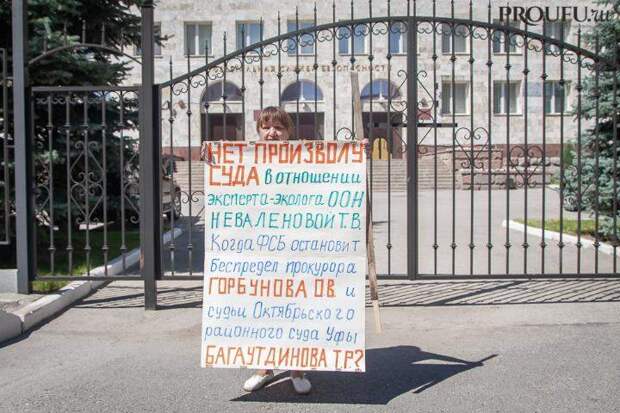 PROUFU.ru
НЕТ ПРОИЗВОЛУ
СУДА в отношении
эксперта-эколога ООН
НЕВАЛЕНОВОЙ Т.В.
Когда ФСБ остановит
Беспредел прокурора
ГОРБУНОВА О.В. и
судьи Октябрьского
районного суда Уфы
БАГАУТДИНОВА Т.Р?